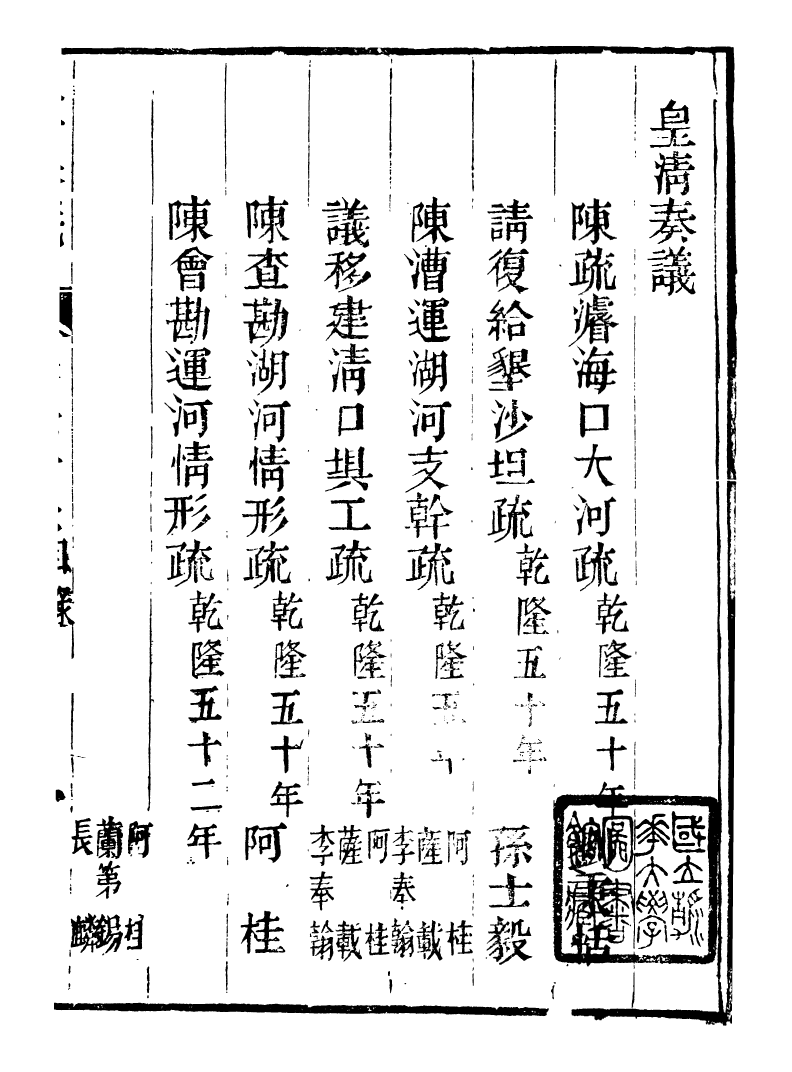 皇清奏議
陳疏濬海口大河疏 乾隆五十年
請復給墾沙坦疏 乾隆五十年 孫士毅
陳漕運湖河支幹疏 乾隆五十年 阿桂 薩載 李奉翰
議移建清口埧工疏 乾隆五十年 阿桂 薩載 李奉翰
陳查勘湖河情形疏 乾隆五十年 阿桂
陳會勘運河情形疏 乾隆五十二年 阿桂 蘭第錫 長麟
目錄
國立清
華大學
圖書
館藏